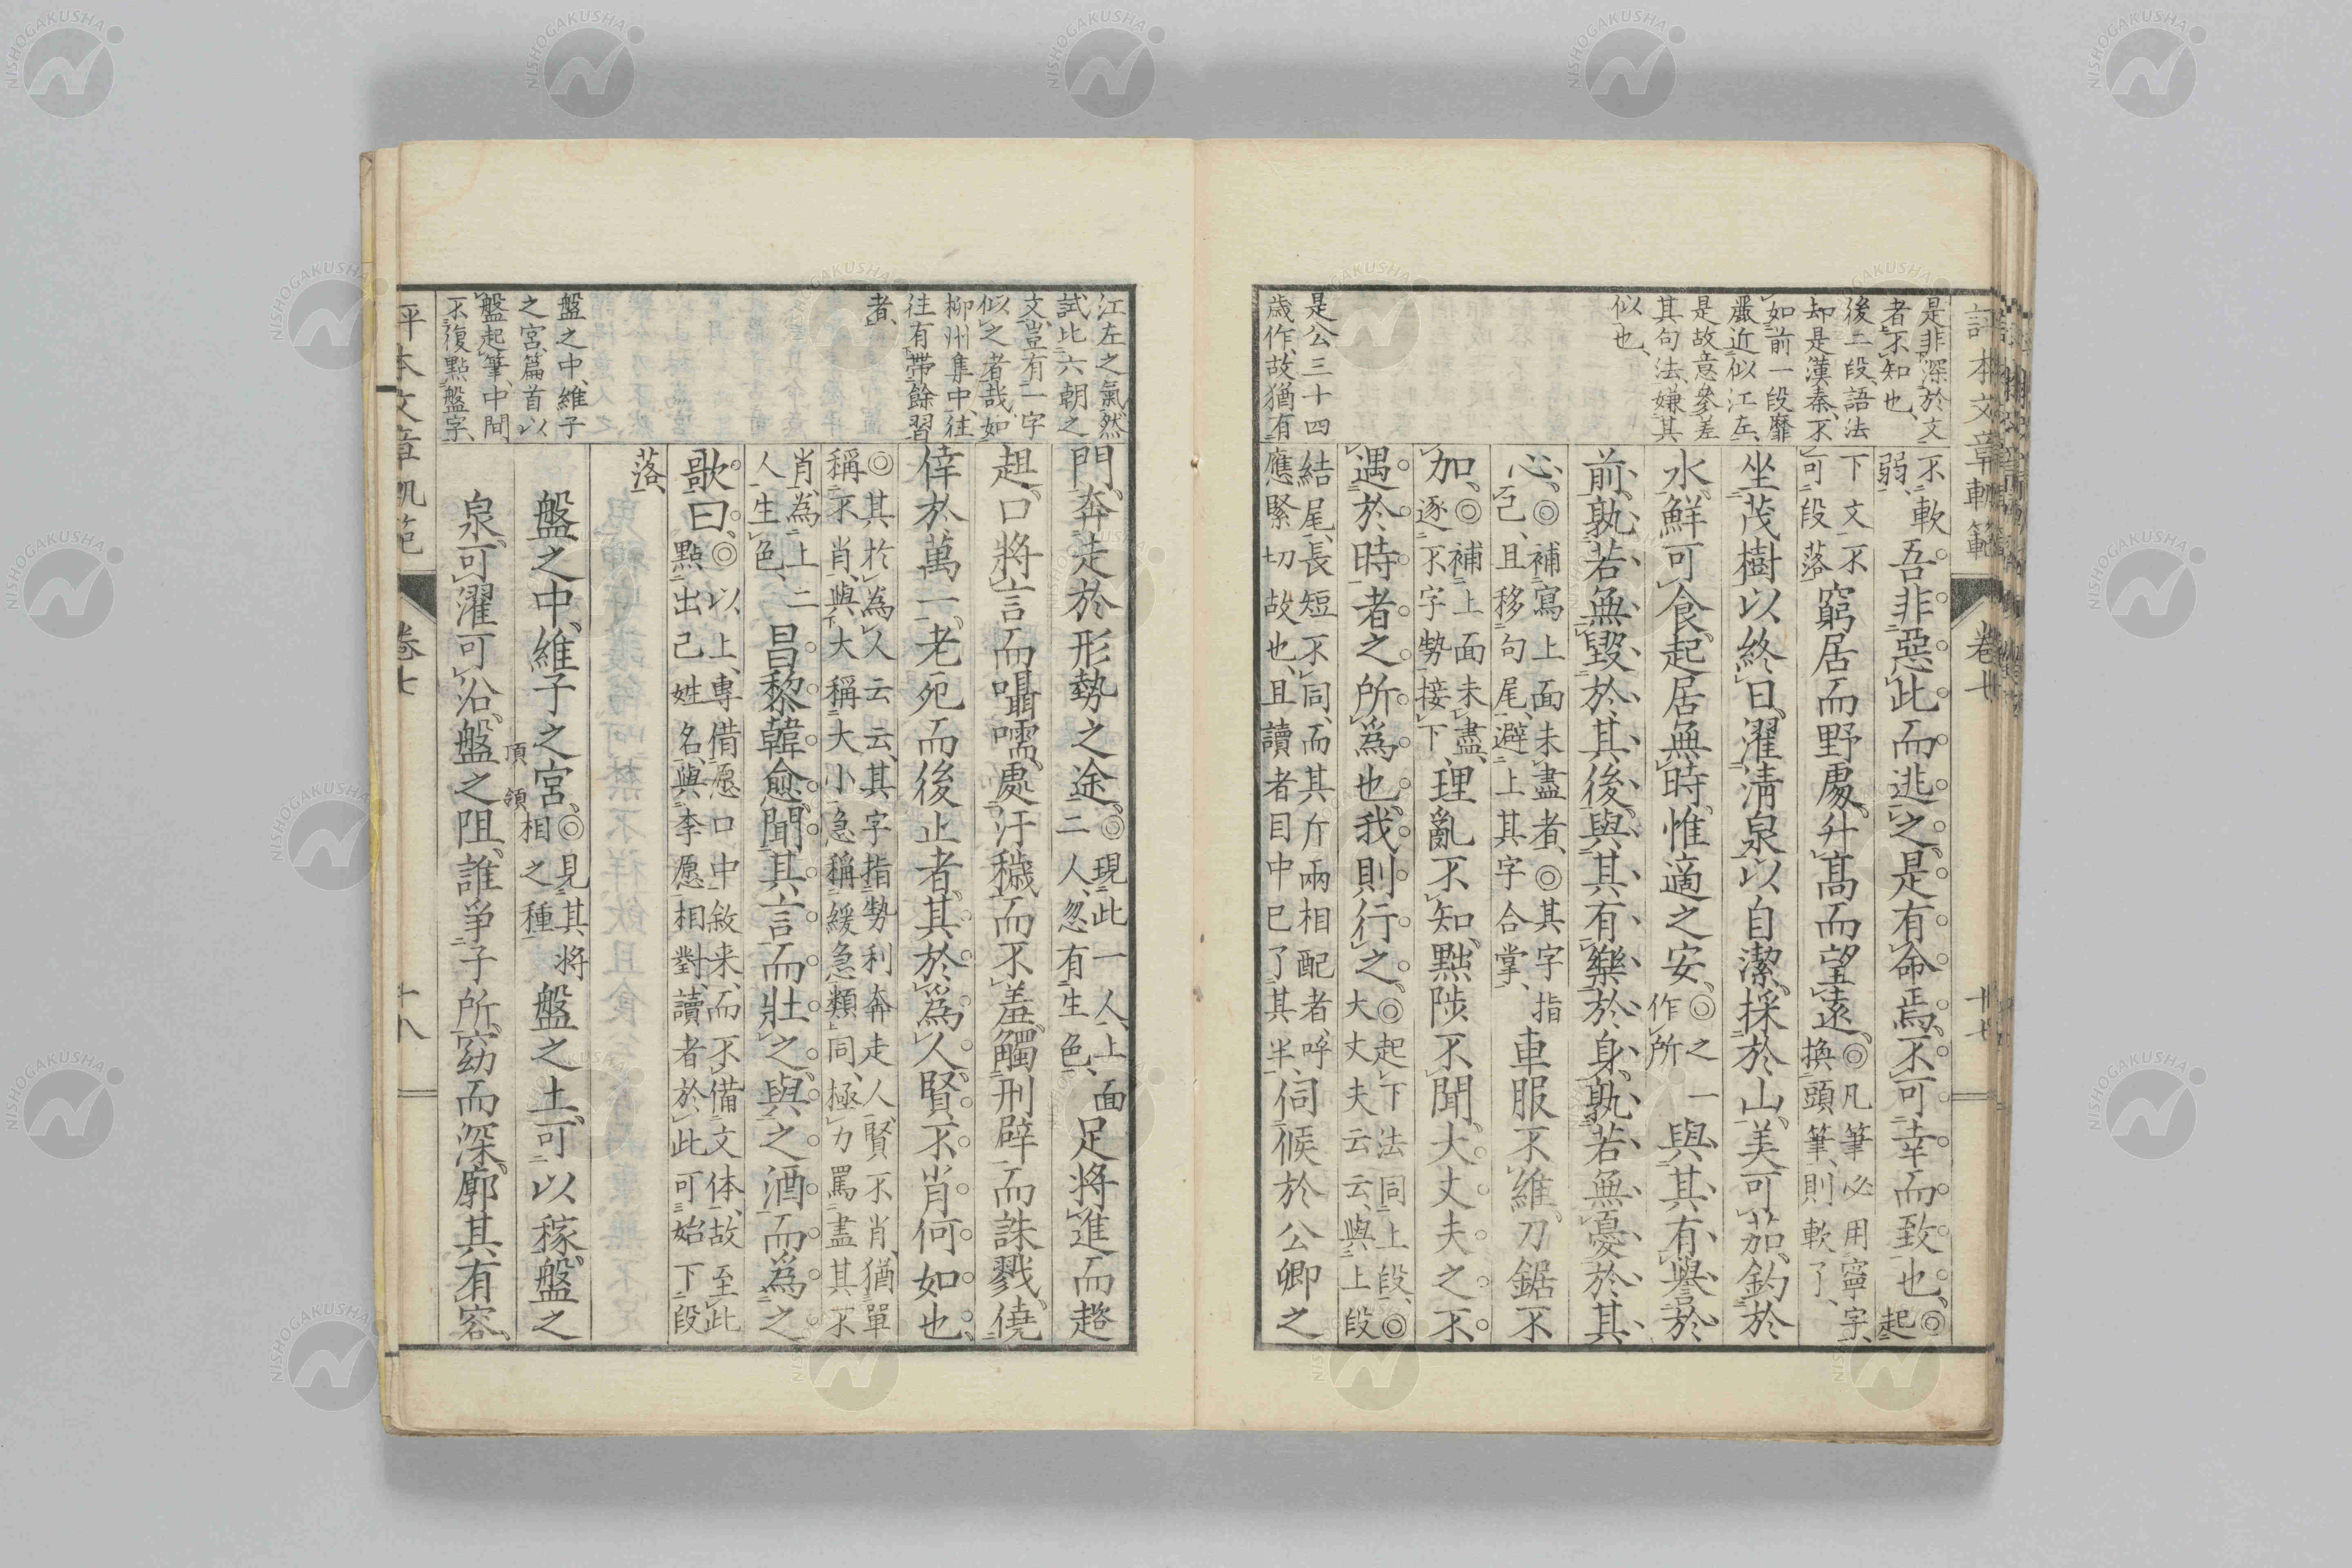 評本文章軌範
卷七
十七
是非深於文
者不知也
後二段語法
却是漢秦不
如前一段靡
嚴近似江左
是故意參差
其句法嫌其
似也
是公三十四
歲作故猶有
不軟
弱吾非惡此而逃之是有命焉不可幸而致也◎起
下文不
可段落窮居而野處升高而望遠◎凡筆必用寧字
換頭筆則軟了
坐茂樹以終日濯淸泉以自潔採於山美可茹釣於
水鮮可食起居無時惟適之安◎之一
作所與其有譽於
前孰若無毀於其後與其有樂於身孰若無憂於其
心◎補寫上面未盡者◎其字指
己且移句尾避上其字合掌車服不維刀鋸不
加◎補上面未盡
逐不字勢接下理亂不知黜陟不聞大丈夫之不
遇於時者之所爲也我則行之◎起下法同上段◎
大丈夫云云與上段
結尾長短不同而其斤兩相配者呼
應緊切故也且讀者目中已了其半伺候於公卿之
江左之氣然
試比六朝之
文豈有一字
似之者哉如
柳州集中往
往有帶餘習
者
盤之中維子
之宮篇首以
盤起筆中間
不復點盤字
門奔走於形勢之途◎現此一人上面
二人忽有生色足將進而趦
趄口將言而囁嚅處汙穢而不羞觸刑辟而誅戮僥
倖於萬一老死而後止者其於爲人賢不肖何如也
◎其於爲人云云其字指勢利奔走人賢不肖猶單
稱不肖與大稱大小急稱緩急類同極力罵盡其不
肖為上二
人生色昌黎韓愈聞其言而壯之與之酒而爲之
歌曰◎以上專借愿口中敘来而不備文体故至此
點出己姓名與李愿相對讀者於此可始下段
落
盤之中維子之宮◎見其將
相之種盤之土可以稼盤之
頂
領
泉可濯可沿盤之阻誰爭子所窈而深廓其有容
評本文章軌範
卷七
十八
NISHOGAKUSHA